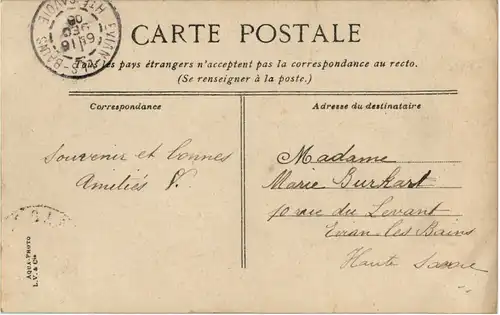 CARTE POSTALE
Tous les pays étrangers n'acceptent pas la correspondance au recto.
(Se renseigner à la poste.)
Correspondance
Adresse du destinataire
Souvenir et bonnes
Amitiés V.
Madame
Marie Burkart
10 rue du Levant
Evian les Bains
Haute Savoie
EVIAN-LES-BAINS HTE SAVOIE
AQUA-PHOTO
L. V. & Cie